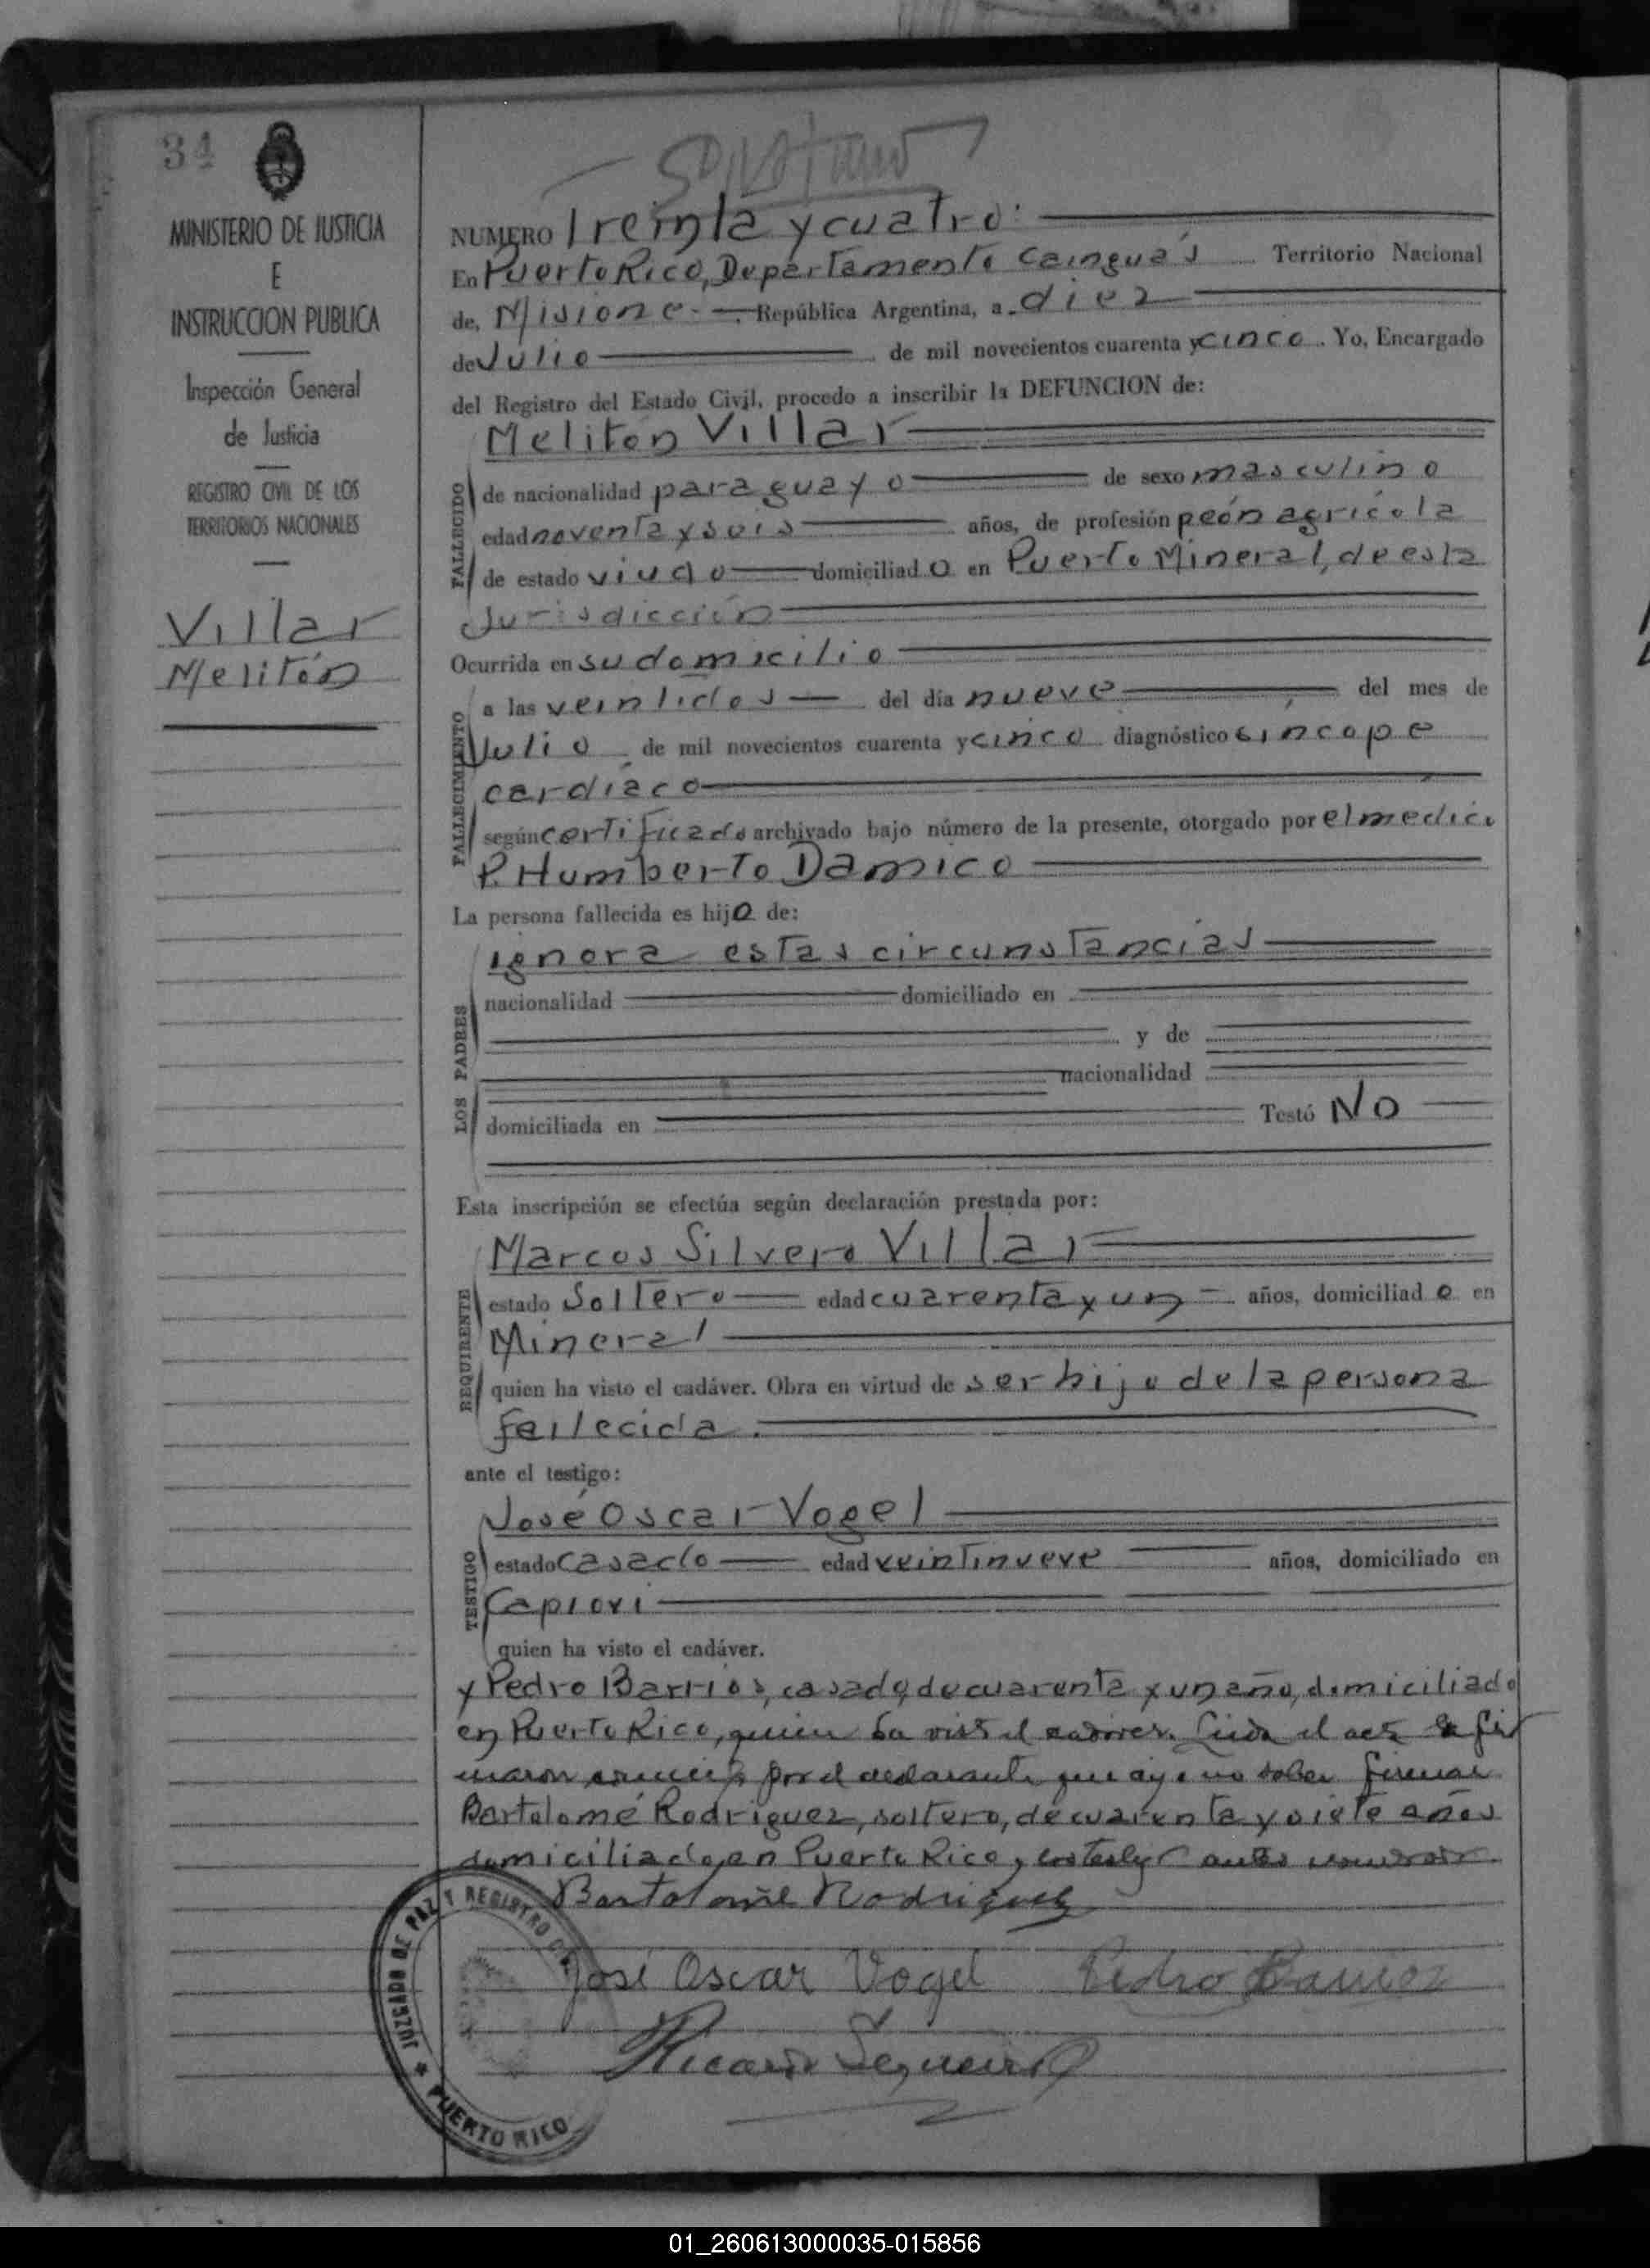 34
MINISTERIO DE JUSTICIA
E
INSTRUCCION PUBLICA
Inspección General
de Justicia
REGISTRO CIVIL DE LOS
TERRITORIOS NACIONALES
Villar
Melitón
NUMERO Treinta y cuatro:
En Puerto Rico, Departamento Cainguás Territorio Nacional
de, Misiones República Argentina, a diez
de Julio de mil novecientos cuarenta y cinco. Yo, Encargado
del Registro del Estado Civil, procedo a inscribir la DEFUNCION de:
Melitón Villar
FALLECIDO
de nacionalidad paraguayo de sexo masculino
edad noventa y seis años, de profesión peón agrícola
de estado viudo domiciliado en Puerto Mineral, de esta
Jurisdicción
Ocurrida en su domicilio
FALLECIMIENTO
a las veintidos del día nueve del mes de
Julio de mil novecientos cuarenta y cinco diagnóstico síncope
cardíaco
según certificado archivado bajo número de la presente, otorgado por el medico
P. Humberto Damico
La persona fallecida es hijo de:
ignora estas circunstancias
LOS PADRES
nacionalidad domiciliado en
y de
nacionalidad
domiciliada en Testó No
Esta inscripción se efectúa según declaración prestada por:
Marcos Silvero Villar
REQUIRENTE
estado Soltero edad cuarenta y un años, domiciliado en
Mineral
quien ha visto el cadáver. Obra en virtud de ser hijo de la persona
fallecida.
ante el testigo:
José Oscar Vogel
TESTIGO
estado casado edad veintinueve años, domiciliado en
Capioví
quien ha visto el cadáver.
y Pedro Barrios, casado, de cuarenta y un año, domiciliado
en Puerto Rico, quien ha visto el cadáver. Leida el acta la fir
maron por el declarante que no saber firmar
Bartolomé Rodriguez, soltero, de cuarenta y siete años
domiciliado en Puerto Rico y
Bartolomé Rodriguez
José Oscar Vogel Pedro Barrios
Ricardo
JUZGADO DE PAZ Y REGISTRO CIVIL
PUERTO RICO
01_260613000035-015856